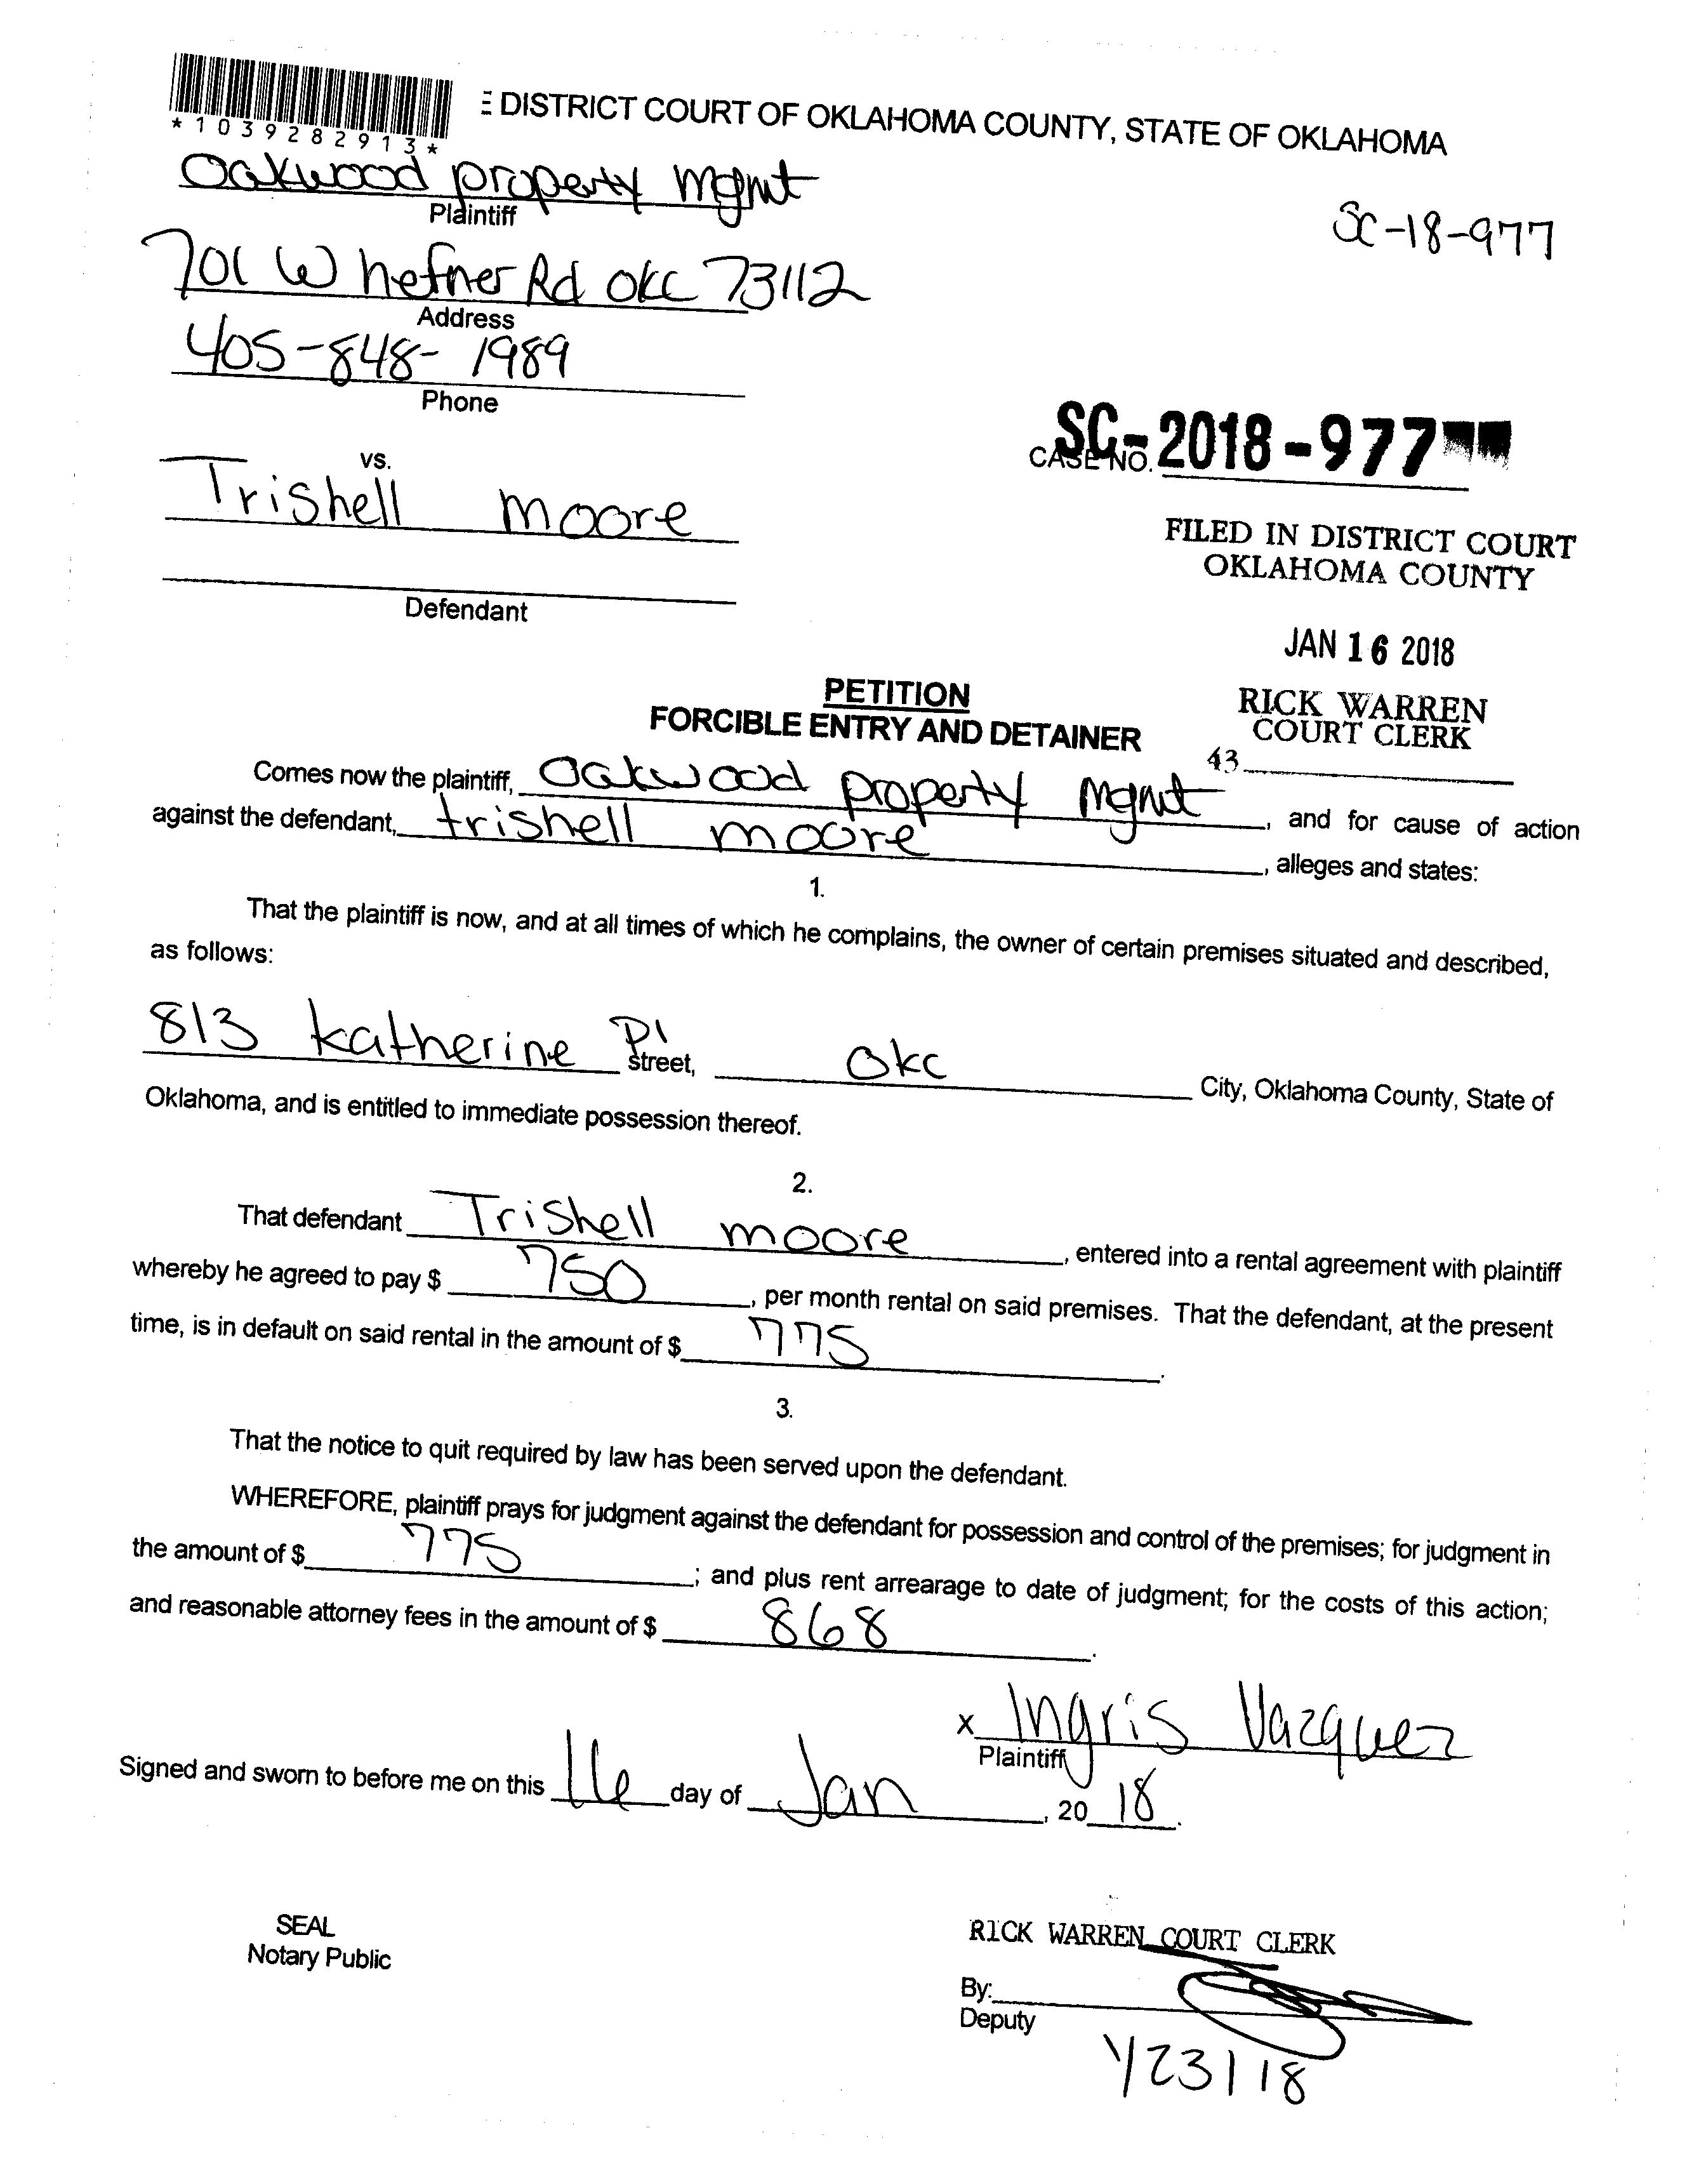 *1039282913*
E DISTRICT COURT OF OKLAHOMA COUNTY, STATE OF OKLAHOMA
Oakwood property mgmt
Plaintiff
SC-18-977
701 W hefner Rd okc 73112
Address
405-848-1989
Phone
SC-2018-977
CASE NO.
vs.
Trishell moore
Defendant
FILED IN DISTRICT COURT
OKLAHOMA COUNTY
JAN 16 2018
RICK WARREN
COURT CLERK
43
PETITION
FORCIBLE ENTRY AND DETAINER
Comes now the plaintiff, Oakwood property mgmt, and for cause of action
against the defendant, trishell moore, alleges and states:
1.
That the plaintiff is now, and at all times of which he complains, the owner of certain premises situated and described,
as follows:
813 katherine Pl street, okc City, Oklahoma County, State of
Oklahoma, and is entitled to immediate possession thereof.
2.
That defendant Trishell moore, entered into a rental agreement with plaintiff
whereby he agreed to pay $ 750, per month rental on said premises. That the defendant, at the present
time, is in default on said rental in the amount of $ 775.
3.
That the notice to quit required by law has been served upon the defendant.
WHEREFORE, plaintiff prays for judgment against the defendant for possession and control of the premises; for judgment in
the amount of $ 775; and plus rent arrearage to date of judgment; for the costs of this action;
and reasonable attorney fees in the amount of $ 868.
x Ingris Vazquez
Plaintiff
Signed and sworn to before me on this 16 day of Jan, 20 18.
SEAL
Notary Public
RICK WARREN COURT CLERK
By:
Deputy